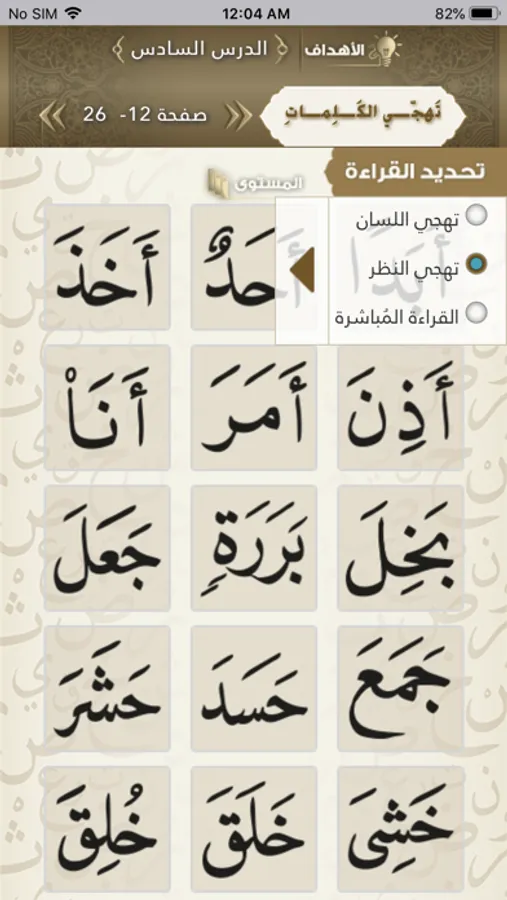 No SIM 12:04 AM 82%
الأهداف ﴿ الدرس السادس ﴾
تَهجّي الكَلِمات صفحة 12- 26
تحديد القراءة
المستوى
تهجي اللسان
تهجي النظر
القراءة المُباشرة
أَبَدًا أَحَدٌ أَخَذَ
أَذِنَ أَمَرَ أَنَا۠
بَخِلَ بَرَرَةٍ جَعَلَ
جَمَعَ حَسَدَ حَشَرَ
خَشِىَ خَلَقَ خُلِقَ